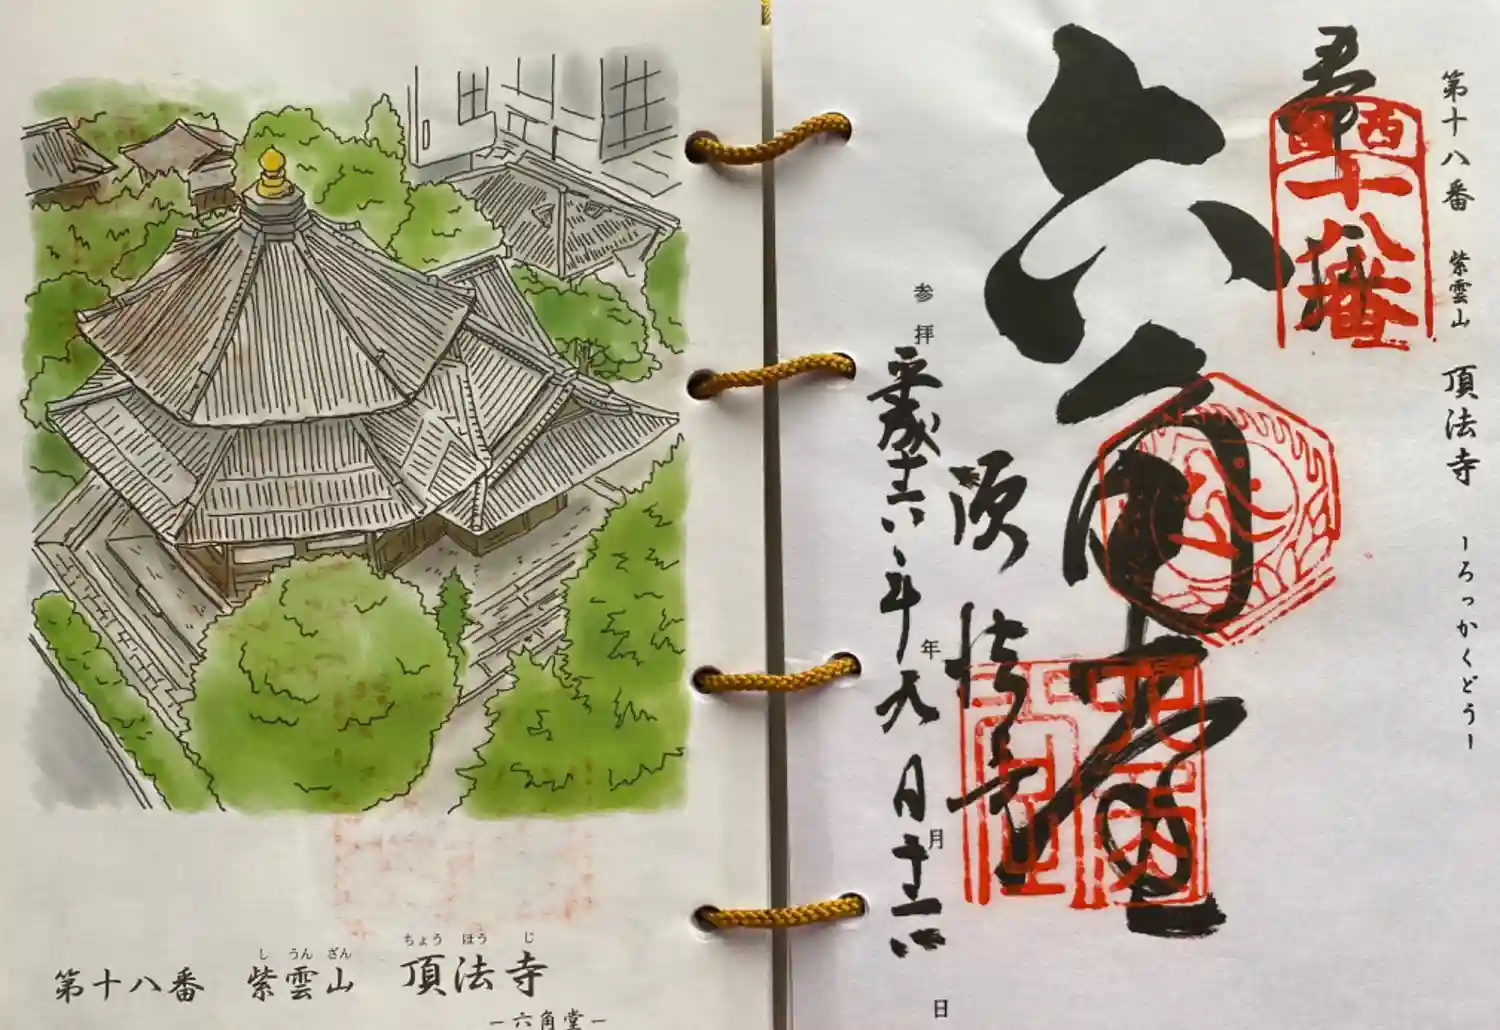 しうんざん ちょうほうじ
第十八番 紫雲山 頂法寺
ー六角堂ー
第十八番 紫雲山 頂法寺 ーろっかくどうー
西国
十八番
六角堂
頂法寺
参拝 年 月 日
平成 年九月